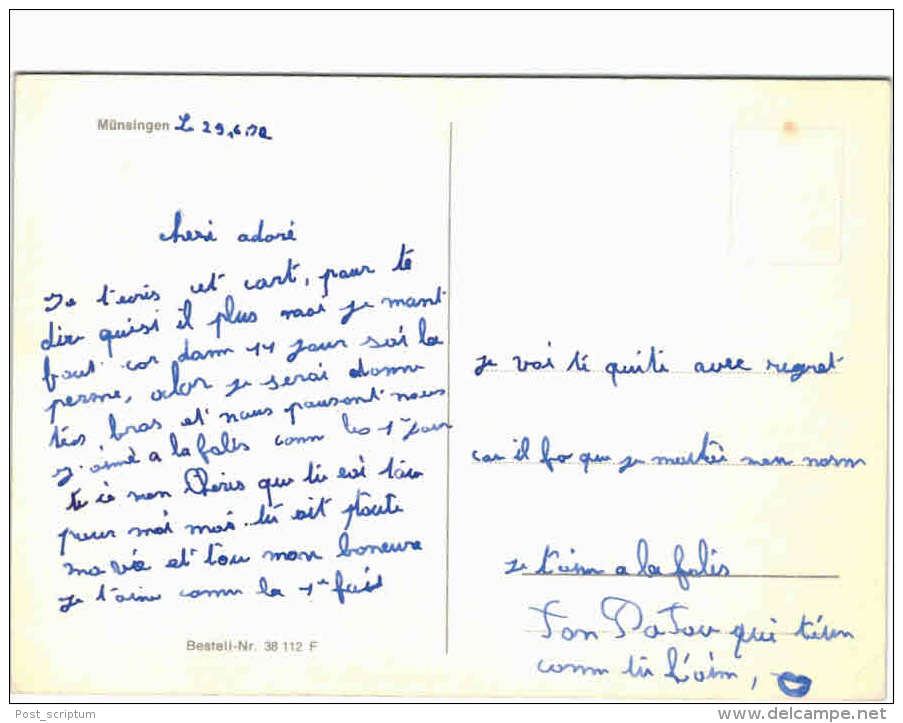 Münsingen L 29.6.72
cheri adoré
Je t'ecris cet cart, pour te
dir quisi il plus moi je m'ant
bout car dann 14 jour sai la
perme, alor je serai dann
tes bras et nous pouront nous
aimé a la folis comm les 1er jour
tu cé mon Cheris que tu est tou
pour moi mai tu ait toute
ma vie et tou mon boneure
je t'aime comm la 1er fois
Bestell-Nr. 38 112 F
je vai te quité avec regret
car il fo que je mon norm
je t'aim a la folis
Ton Patou qui t'eim
comm tu l'aim,
Post_scriptum
delcampe.net